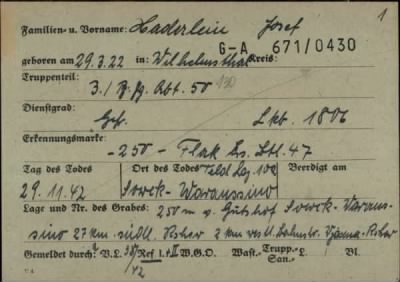 1
Familien- u. Vorname: Haderlein Josef
G-A 671/0430
geboren am 29.3.22 in: Wilhelmsthal Kreis:
Truppenteil:
3./ Pz. Jg. Abt. 50
Dienstgrad:
Gef. Lkb. 1806
Erkennungsmarke:
-250- Flak Ers. Btl. 47
Tag des Todes Ort des Todes Feld Laz. Beerdigt am
29.11.42 Sowek-Waraussino
Lage und Nr. des Grabes: 250 m v. Gutshof Sowek-Waraus-
sino 27 km südl. Rshew 2 km westl. Bahnstr. Wjasma-Rshew
Gemeldet durch: V.L. Ref I.+II W.G.O. Wast.- Trupp.- San.- L. Vl.
42